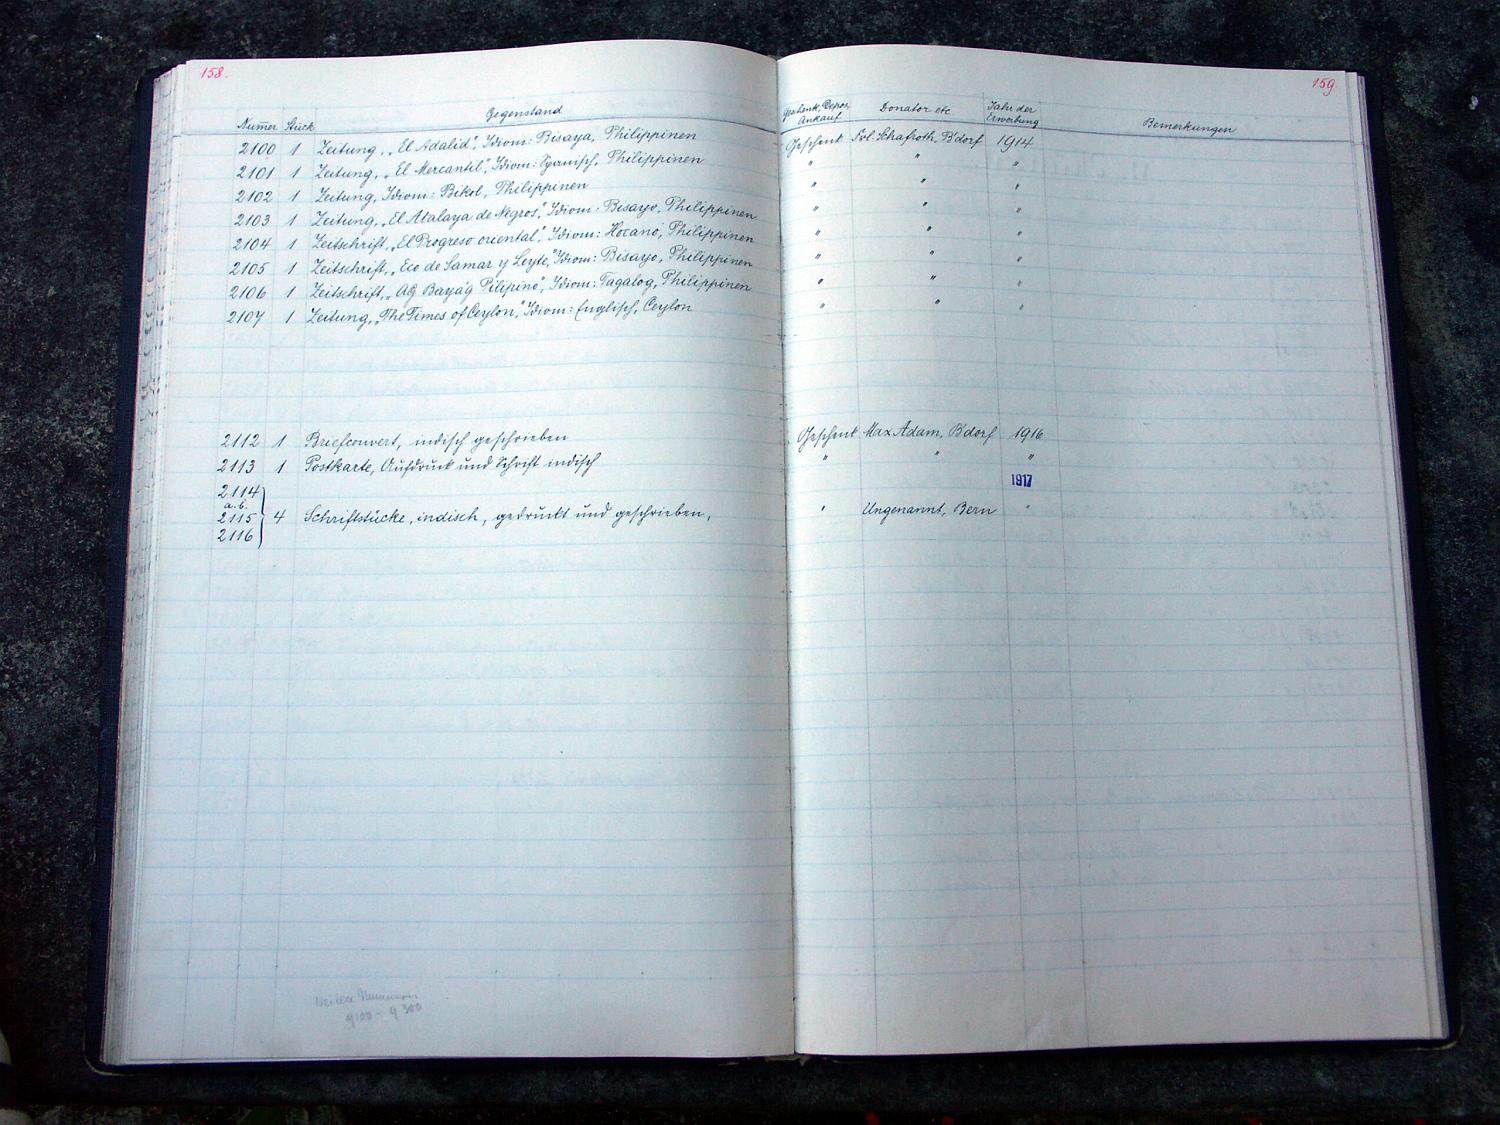 158.
159.
Numer Stück Gegenstand Geschenk, Depos, Ankauf Donator etc Jahr der Erwerbung Bemerkungen
2100 1 Zeitung, „El Adalid", Idiom: Bisaya, Philippinen Geschenk Schafroth, B'dorf 1914
2101 1 Zeitung, „El Mercantil", Idiom: Spanisch, Philippinen " " "
2102 1 Zeitung, Idiom: Bikol, Philippinen " " "
2103 1 Zeitung, „El Atalaya de Negros", Idiom: Bisayo, Philippinen " " "
2104 1 Zeitschrift, „El Progreso oriental", Idiom: Ilocano, Philippinen " " "
2105 1 Zeitschrift, „Eco de Samar y Leyte", Idiom: Bisayo, Philippinen " " "
2106 1 Zeitschrift, Pilipino", Idiom: Tagalog, Philippinen " " "
2107 1 Zeitung, „The Times of Ceylon", Idiom: Englisch, Ceylon " " "
2112 1 Briefcouvert, indisch geschrieben Geschenk Max Adam, B'dorf 1916
2113 1 Postkarte, Aufdruck und Schrift indisch " " "
2114 1917
a.b.
2115 4 Schriftstücke, indisch, gedruckt und geschrieben, " Ungenannt, Bern "
2116
weitere Nummern
9100 - 9300